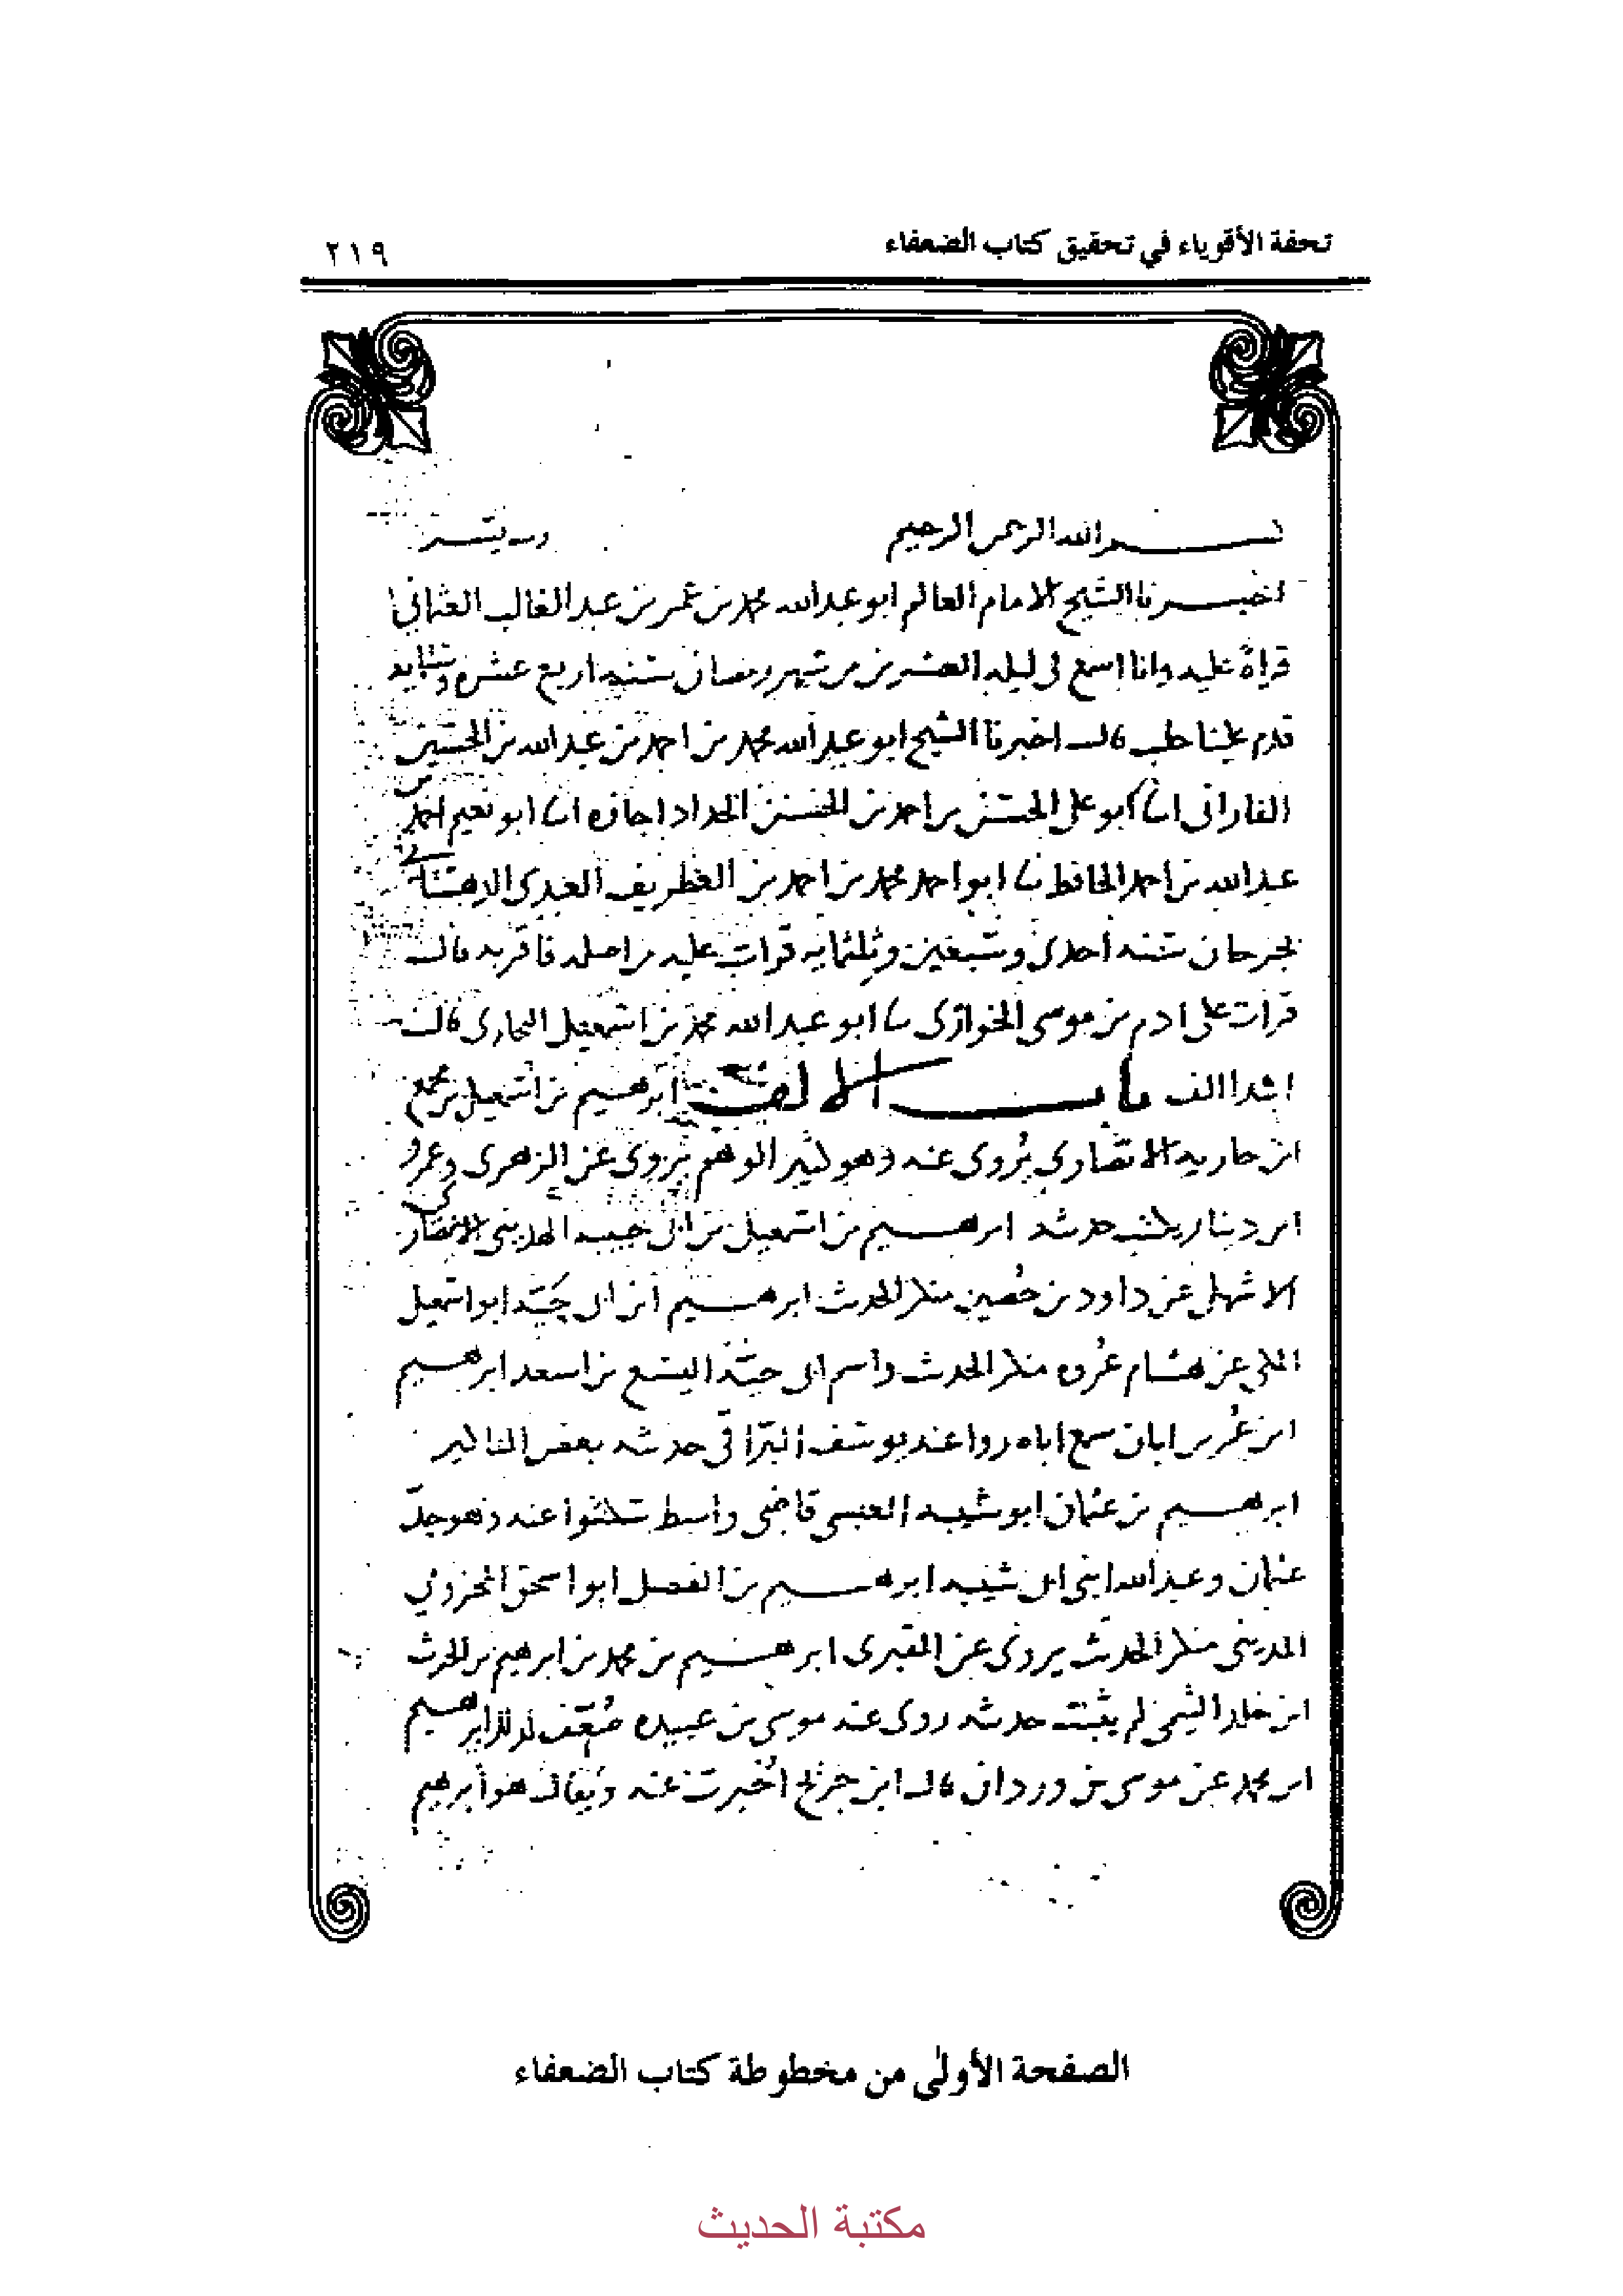 تحفة الأقوياء في تحقيق كتاب الضعفاء
٢١٩
بسم الله الرحمن الرحيم
اخبرنا الشيخ الامام العالم ابو عبدالله محمد بن عمر بن عبد الغالب العثماني
قراة عليه وانا اسمع في ليله العشرين من شهر رمضان سنه اربع عشره وستمايه
قدم علينا حلب قال اخبرنا الشيخ ابو عبد الله محمد بن احمد بن عبد الله بن الحسين
الفاراني ابنا ابو على الحسن بن احمد بن الحسن الحداد اجازه ابنا ابو نعيم احمد بن
عبد الله بن احمد الحافظ ثنا ابو احمد محمد بن احمد بن الغطريف العبدى
بجرجان سنه احدى وسبعين وثلثمايه قرات عليه من اصله فاقر به قال
قرات على ادم بن موسى الخوازى ثنا ابو عبد الله محمد بن اسمعيل البخارى قال
ابتدا الف باب الالف ابرهيم بن اسمعيل بن مجمع
ابن جاريه الانصارى يروى عنه وهو كثير الوهم يروى عن الزهرى وعمرو
ابن دينار يكتب حديثه ابرهيم بن اسمعيل بن ابى حبيبه المدينى الانصارى
الاشهلى عن داود بن حصين منكر الحديث ابرهيم ابن ابى حية ابو اسمعيل
المكى عن هشام عروه منكر الحديث واسم ابى حية اليسع بن اسعد ابرهيم
ابن عمر بن ابان سمع اباه روا عنه يوسف البرا فى حديثه بعض المناكير
ابرهيم بن عثمان ابو شيبه العبسى قاضى واسط سكتوا عنه وهو جد
عثمان وعبد الله ابنى ابى شيبه ابرهيم بن الفضل ابو اسحق المخزومى
المدينى منكر الحديث يروى عن المقبرى ابرهيم بن محمد بن ابرهيم بن الحرث
ابن خلد التيمى لم يثبت حديثه روى عنه موسى بن عبيده ضعف لذلك ابرهيم
ابن محمد عن موسى بن وردان قال ابن جريج اخبرت عنه ويقال هو ابرهيم
الصفحة الأولى من مخطوطة كتاب الضعفاء
مكتبة الحديث